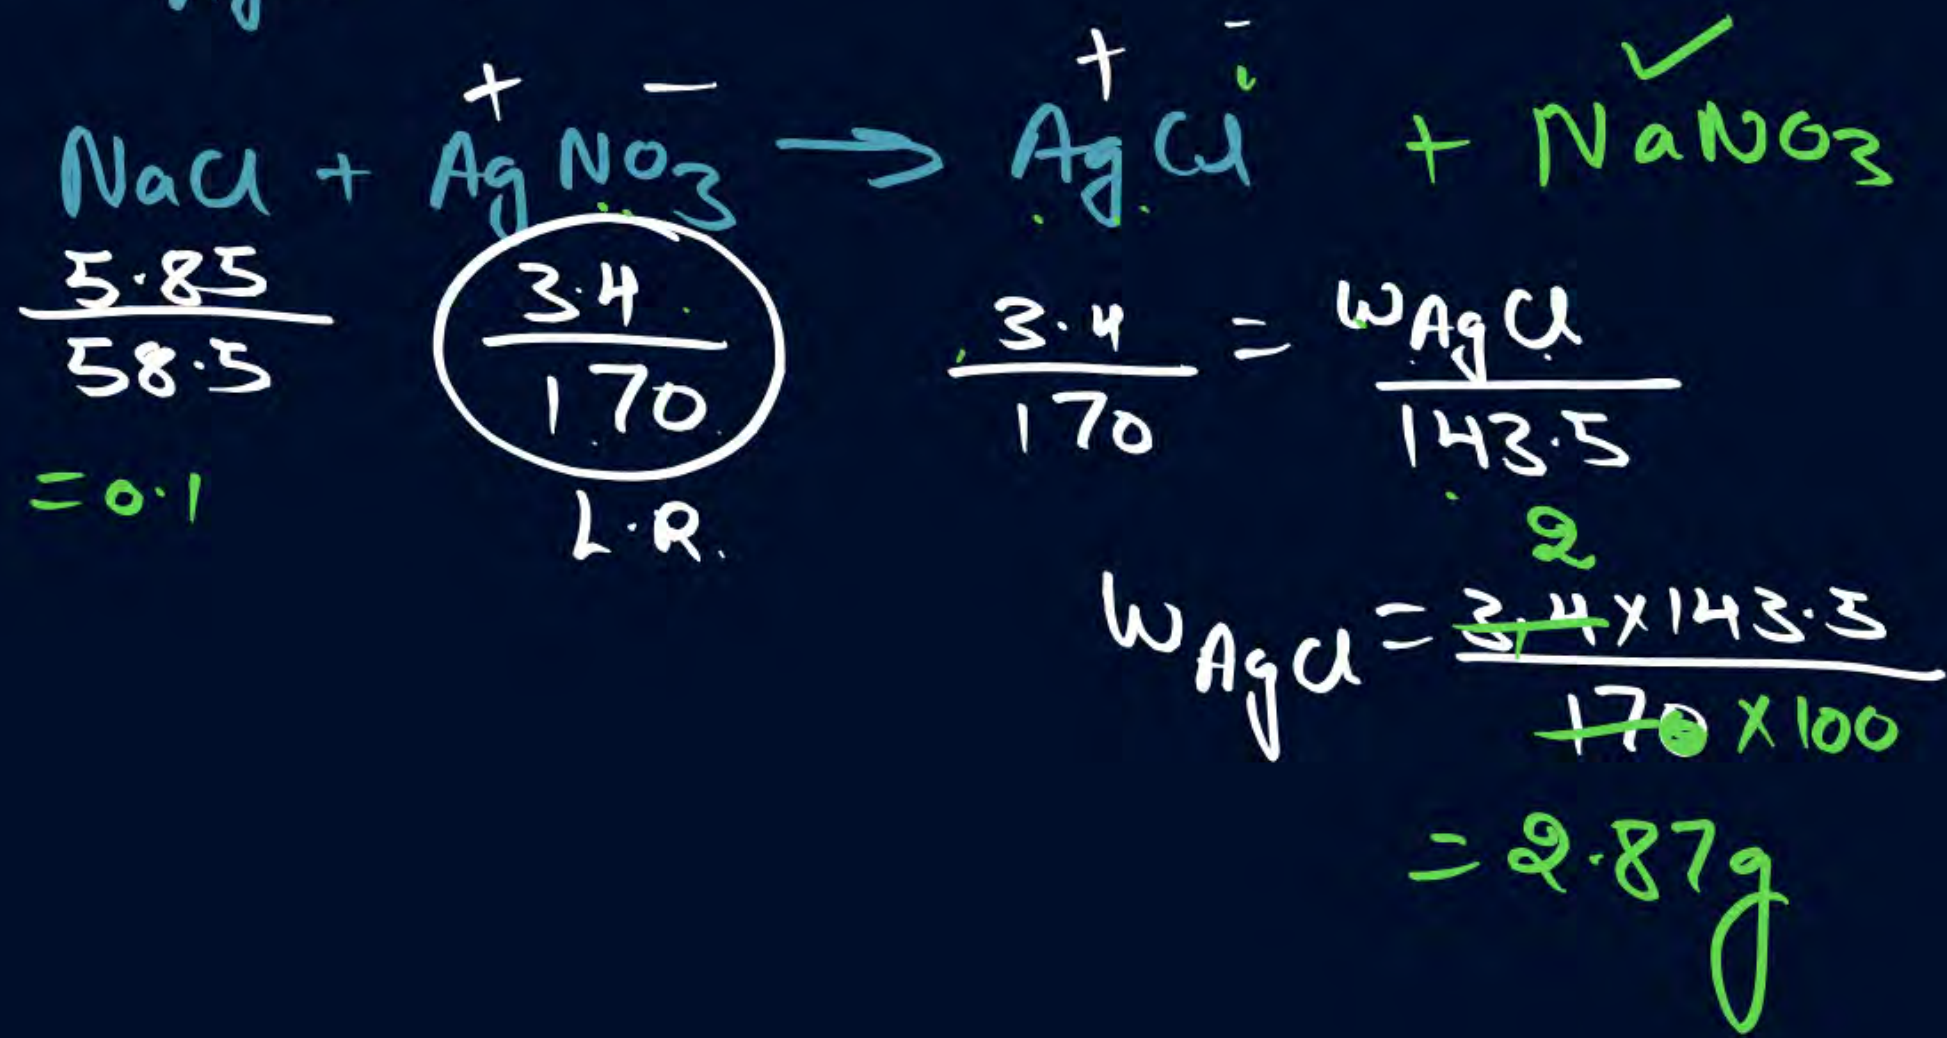 + - + -
NaCl + AgNO3 → AgCl + NaNO3 ✓
5.85/58.5 3.4/170 3.4/170 = WAgCl/143.5
= 0.1 L.R.
2
WAgCl = 3.4 x 143.5 / 170 x 100
= 2.87g